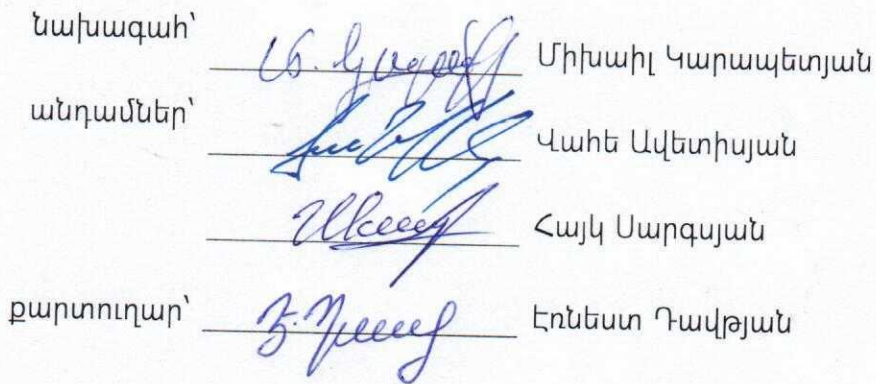 նախագահ՝
Միխաիլ Կարապետյան
անդամներ՝
Վահե Ավետիսյան
Հայկ Սարգսյան
քարտուղար՝ Էռնեստ Դավթյան